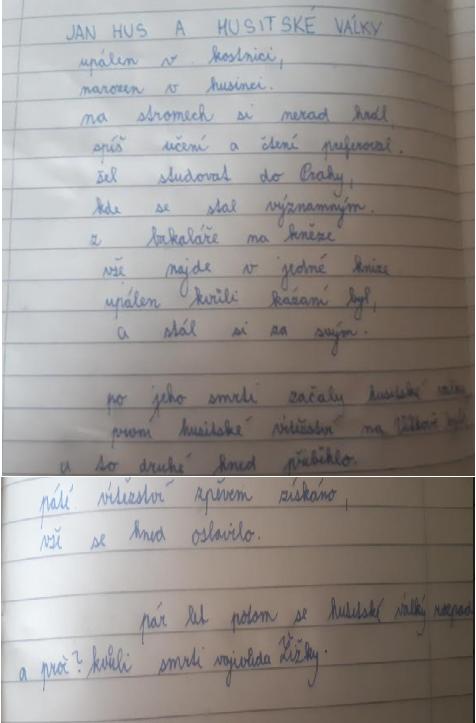 JAN HUS A HUSITSKÉ VÁLKY
upálen v kostnici,
narozen v husinci.
na stromech si nerad hrál,
spíš učení a čtení preferoval.
šel studovat do Prahy,
kde se stal významným.
z bakaláře na kněze
vše najde v jedné knize
upálen kvůli kázaní byl,
a stál si za svým.
po jeho smrti začaly husitské války
první husitské vítězství na
a to druhé hned přiběhlo.
páté vítězství zpěvem získáno,
vše se hned oslavilo.
pár let potom se husitské války rozpad
a proč? kvůli smrti vojvoda Žižky.